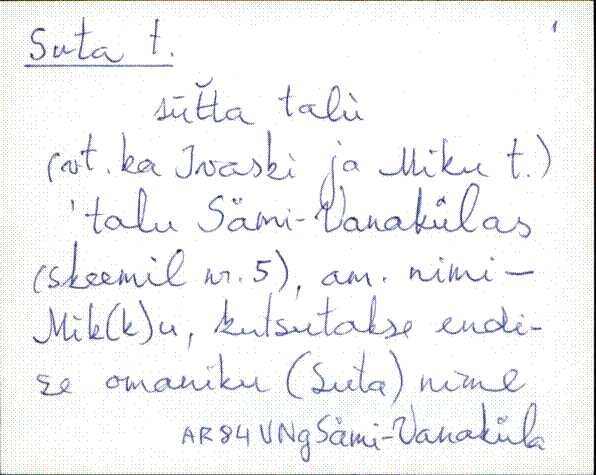 Suta t.
sūt̆ta talù
(vt. ka Ivaski ja Miku t.)
'talu Sämi-Vanakülas
(skeemil nr. 5), am. nimi –
Mik(k)u, kutsutakse endi-
se omaniku (Suta) nime
AR84 VNg Sämi-Vanaküla